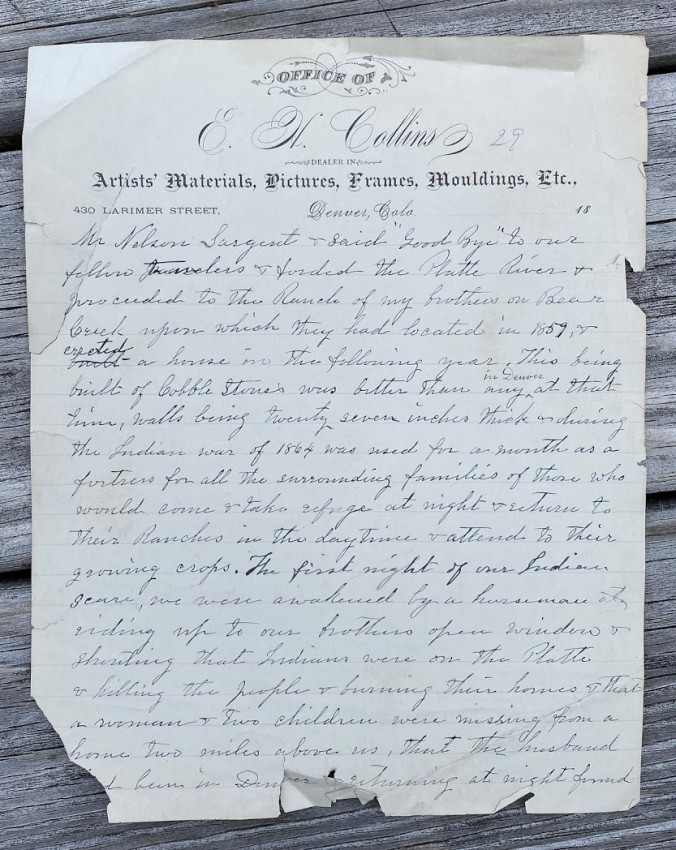 OFFICE OF
E. H. Collins 29
DEALER IN
Artists' Materials, Pictures, Frames, Mouldings, Etc.,
430 LARIMER STREET, Denver, Colo. 18
Mr Nelson Sargent & said "Good Bye" to our
fellow travelers & forded the Platte River &
proceeded to the Ranch of my brothers on Bear
Creek upon which they had located in 1859, &
erected
built a house in the following year. This being
in Denver
built of Cobble Stones was better than any at that
time, walls being twenty seven inches thick & during
the Indian war of 1864 was used for a month as a
fortress for all the surrounding families of those who
would come & take refuge at night & return to
their Ranches in the daytime & attend to their
growing crops. The first night of our Indian
scare, we were awakened by a horseman
riding up to our brothers open window &
shouting that Indians were on the Platte
& killing the people & burning their homes & that
a woman & two children were missing from a
home two miles above us, that the husband
been in Denver & returning at night found